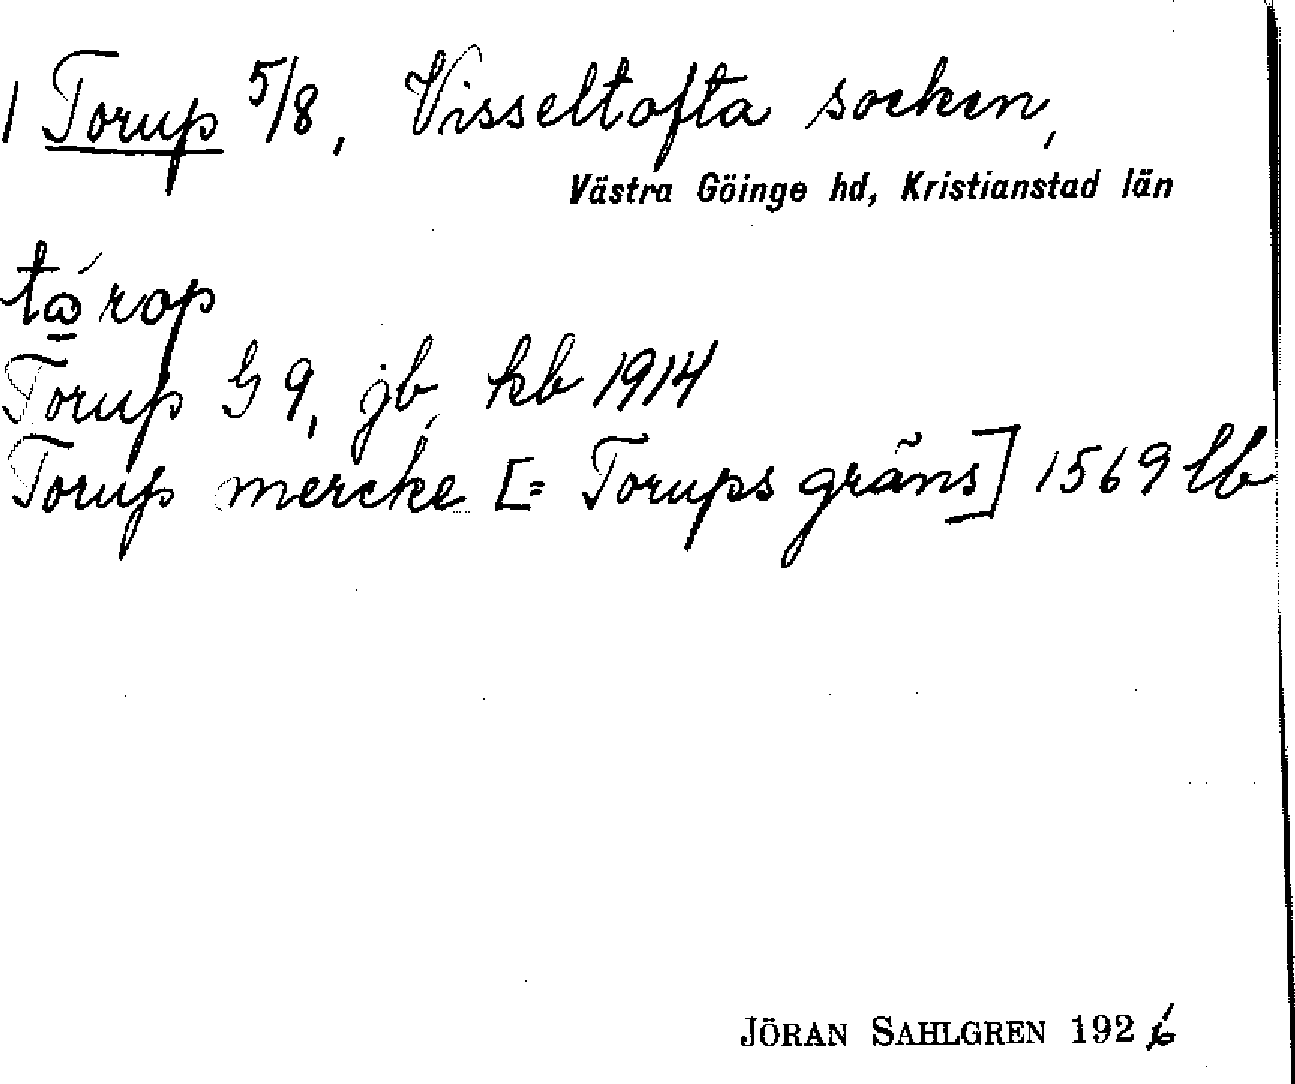 1 Torup 5/8, Visseltofta socken,
Västra Göinge hd, Kristianstad län
tώ̲rop
Torup G 9, jb, kb 1914
Torup mercke [= Torups gräns] 1569 lb
JÖRAN SAHLGREN 1926